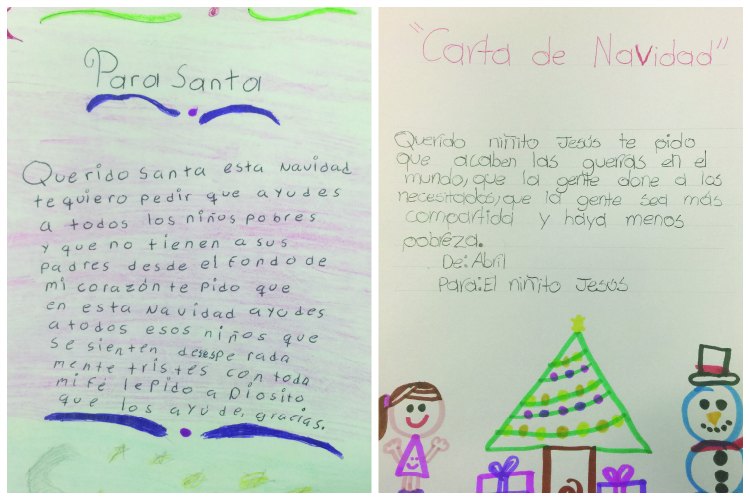 Para Santa
Querido Santa esta Navidad
te quiero pedir que ayudes
a todos los niños pobres
y que no tienen a sus
padres desde el fondo de
mi corazón te pido que
en esta Navidad ayudes
a todos esos niños que
se sienten desesperada
mente tristes con toda
mi fé le pido a Diosito
que los ayude, gracias.
"Carta de Navidad"
Querido niñito Jesús te pido
que acaben las guerras en el
mundo, que la gente done a los
necesitados, que la gente sea más
compartida y haya menos
pobreza.
De: Abril
Para: El niñito Jesús